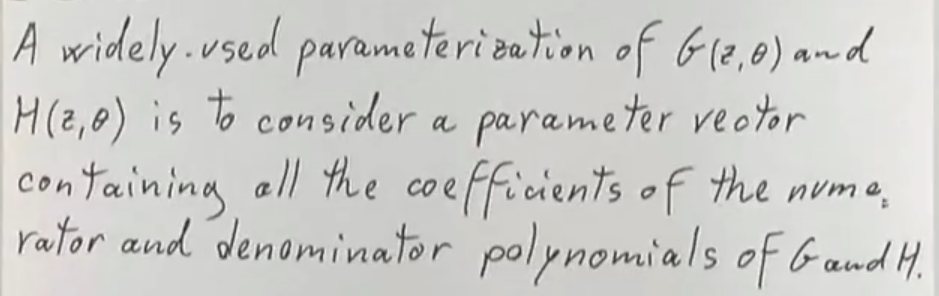 A widely-used parameterization of G(z,θ) and
H(z,θ) is to consider a parameter vector
containing all the coefficients of the nume-
rator and denominator polynomials of G and H.